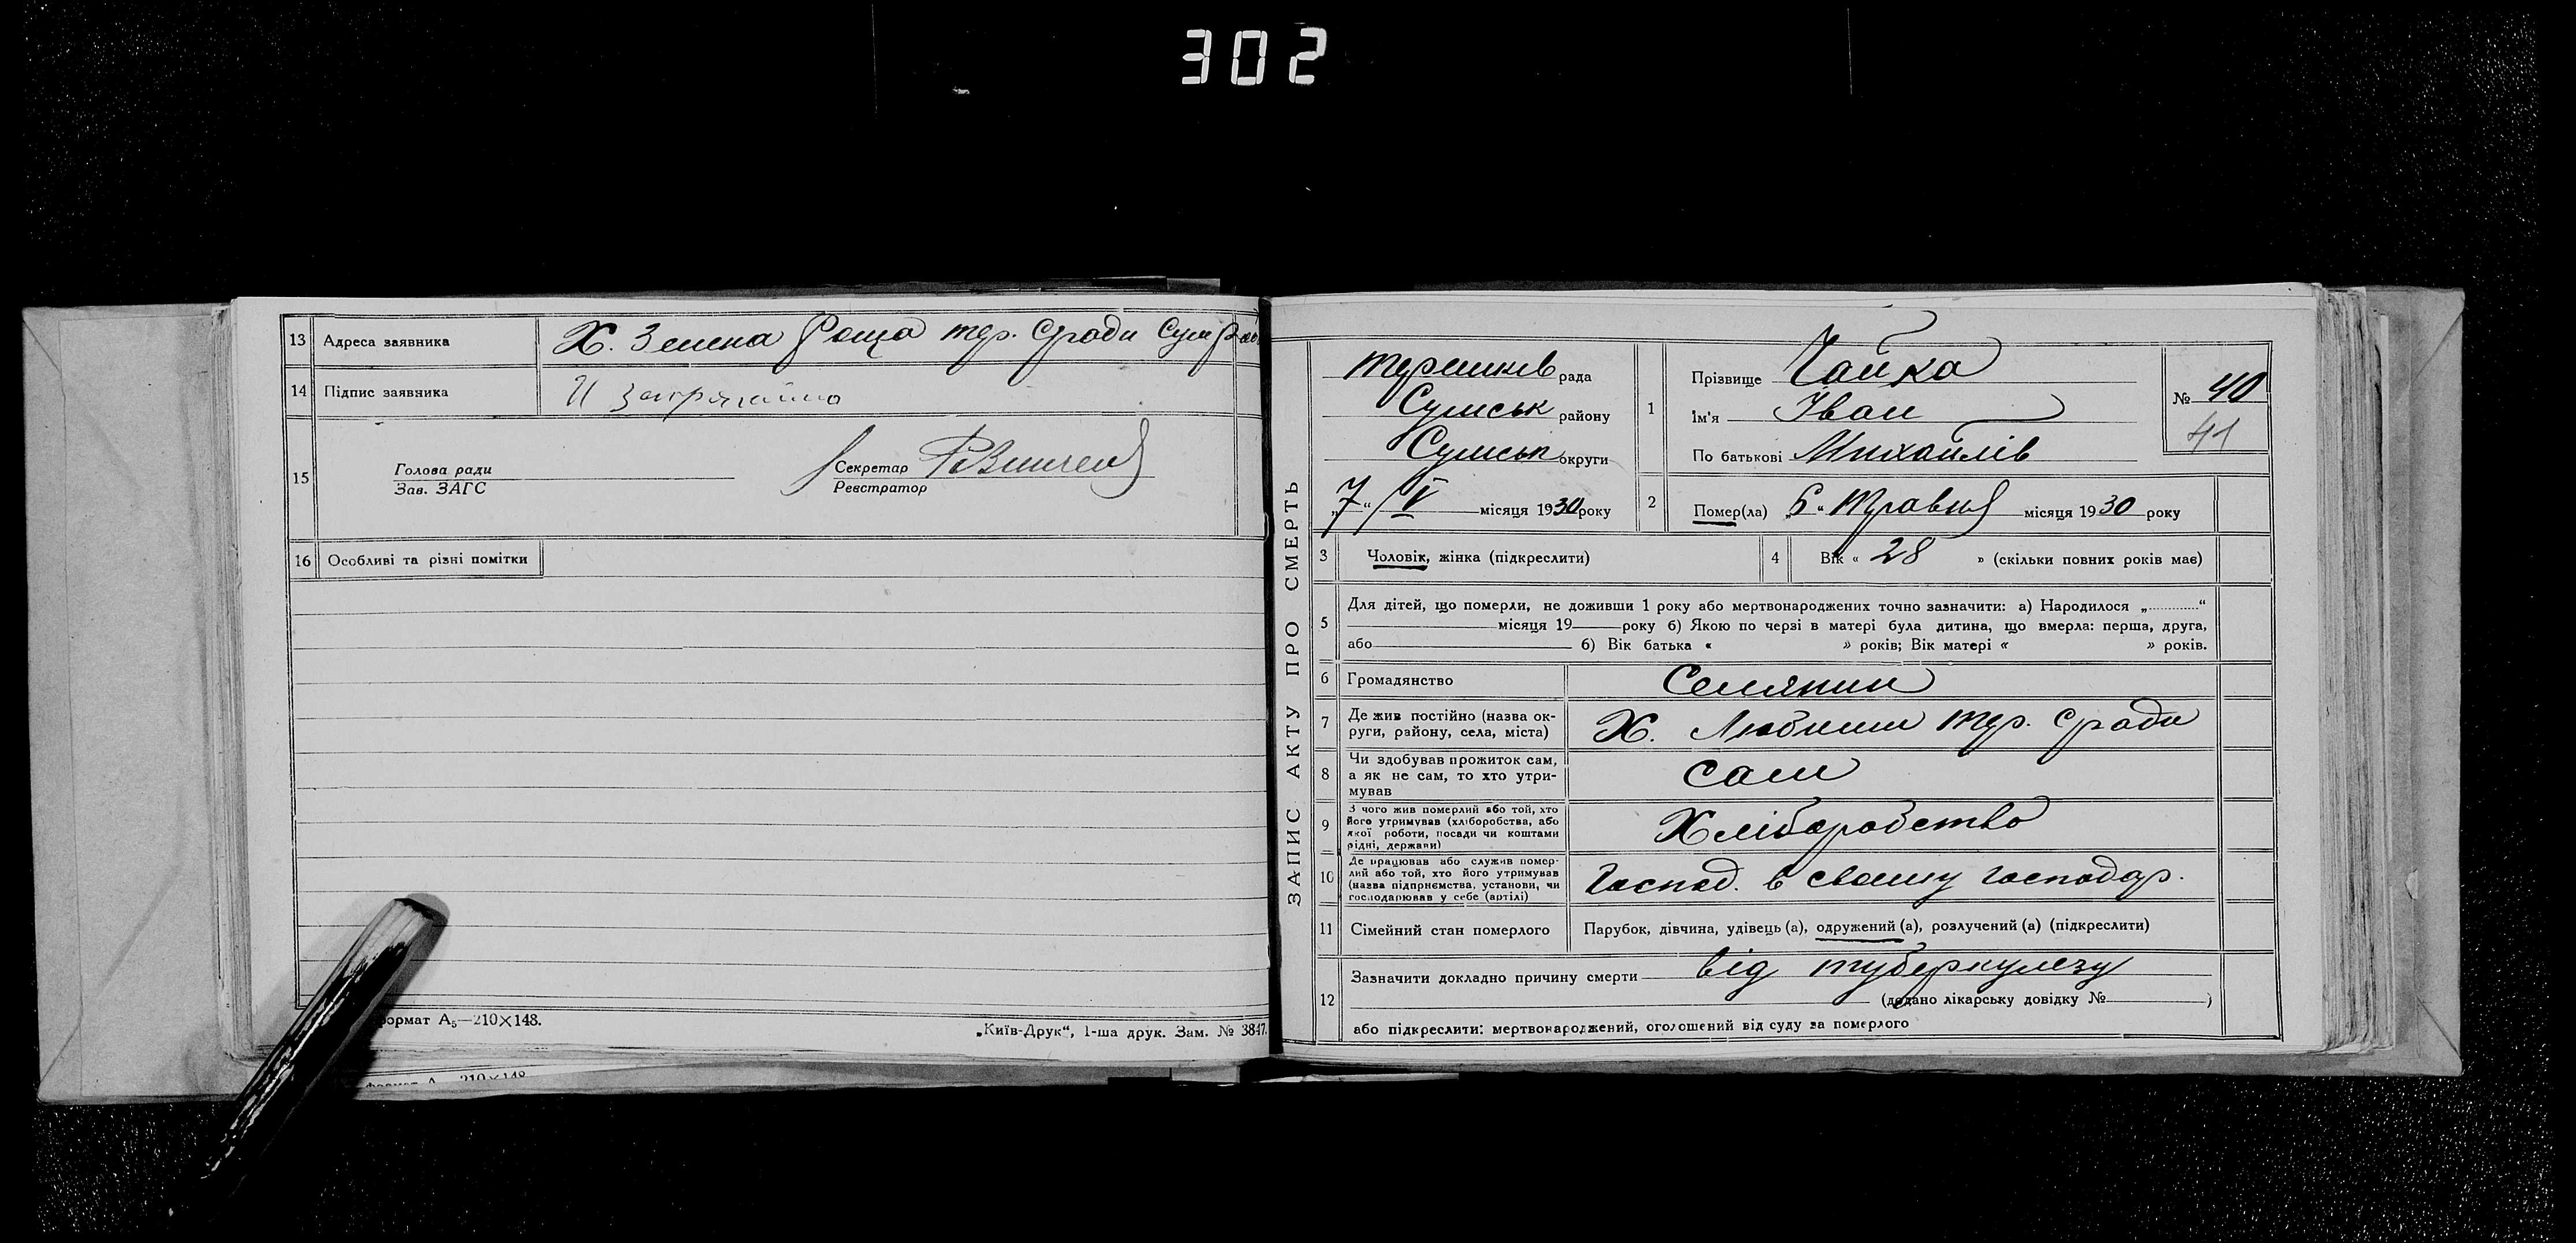 302
13 Адреса заявника Х. Зелена Роща тер. С/ради Сум Рай
14 Підпис заявника И
15 Голова ради
Зав. ЗАГС
Секретар
Реєстратор
16 Особливі та різні помітки
формат А₅—210×148.
„Київ-Друк“, 1-ша друк. Зам. № 3847.
формат А 210×148
ЗАПИС АКТУ ПРО СМЕРТЬ
терешків рада
Сумськ району
Сумськ округи
„7“ V місяця 1930 року
1 Прізвище Чайка
Ім'я Іван
По батькові Михайлів
№ 40
41
2 Помер(ла) „6“ Травня місяця 1930 року
3 Чоловік, жінка (підкреслити)
4 Вік « 28 » (скільки повних років має)
5 Для дітей, що померли, не доживши 1 року або мертвонароджених точно зазначити: а) Народилося „............“
місяця 19 року б) Якою по черзі в матері була дитина, що вмерла: перша, друга,
або б) Вік батька « » років; Вік матері « » років.
6 Громадянство Селянин
7 Де жив постійно (назва ок-
руги, району, села, міста) Х. Любиши тер. С/ради
8 Чи здобував прожиток сам,
а як не сам, то хто утри-
мував сам
9 З чого жив померлий або той, хто
його утримував (хліборобства, або
якої роботи, посади чи коштами
рідні, держави) Хліборобство
10 Де працював або служив помер-
лий або той, хто його утримував
(назва підприємства, установи, чи
господарював у себе (артілі) Господ. в своему господар.
11 Сімейний стан померлого Парубок, дівчина, удівець (а), одружений (а), розлучений (а) (підкреслити)
12 Зазначити докладно причину смерти від туберкулезу
(додано лікарську довідку № )
або підкреслити: мертвонароджений, оголошений від суду за померлого